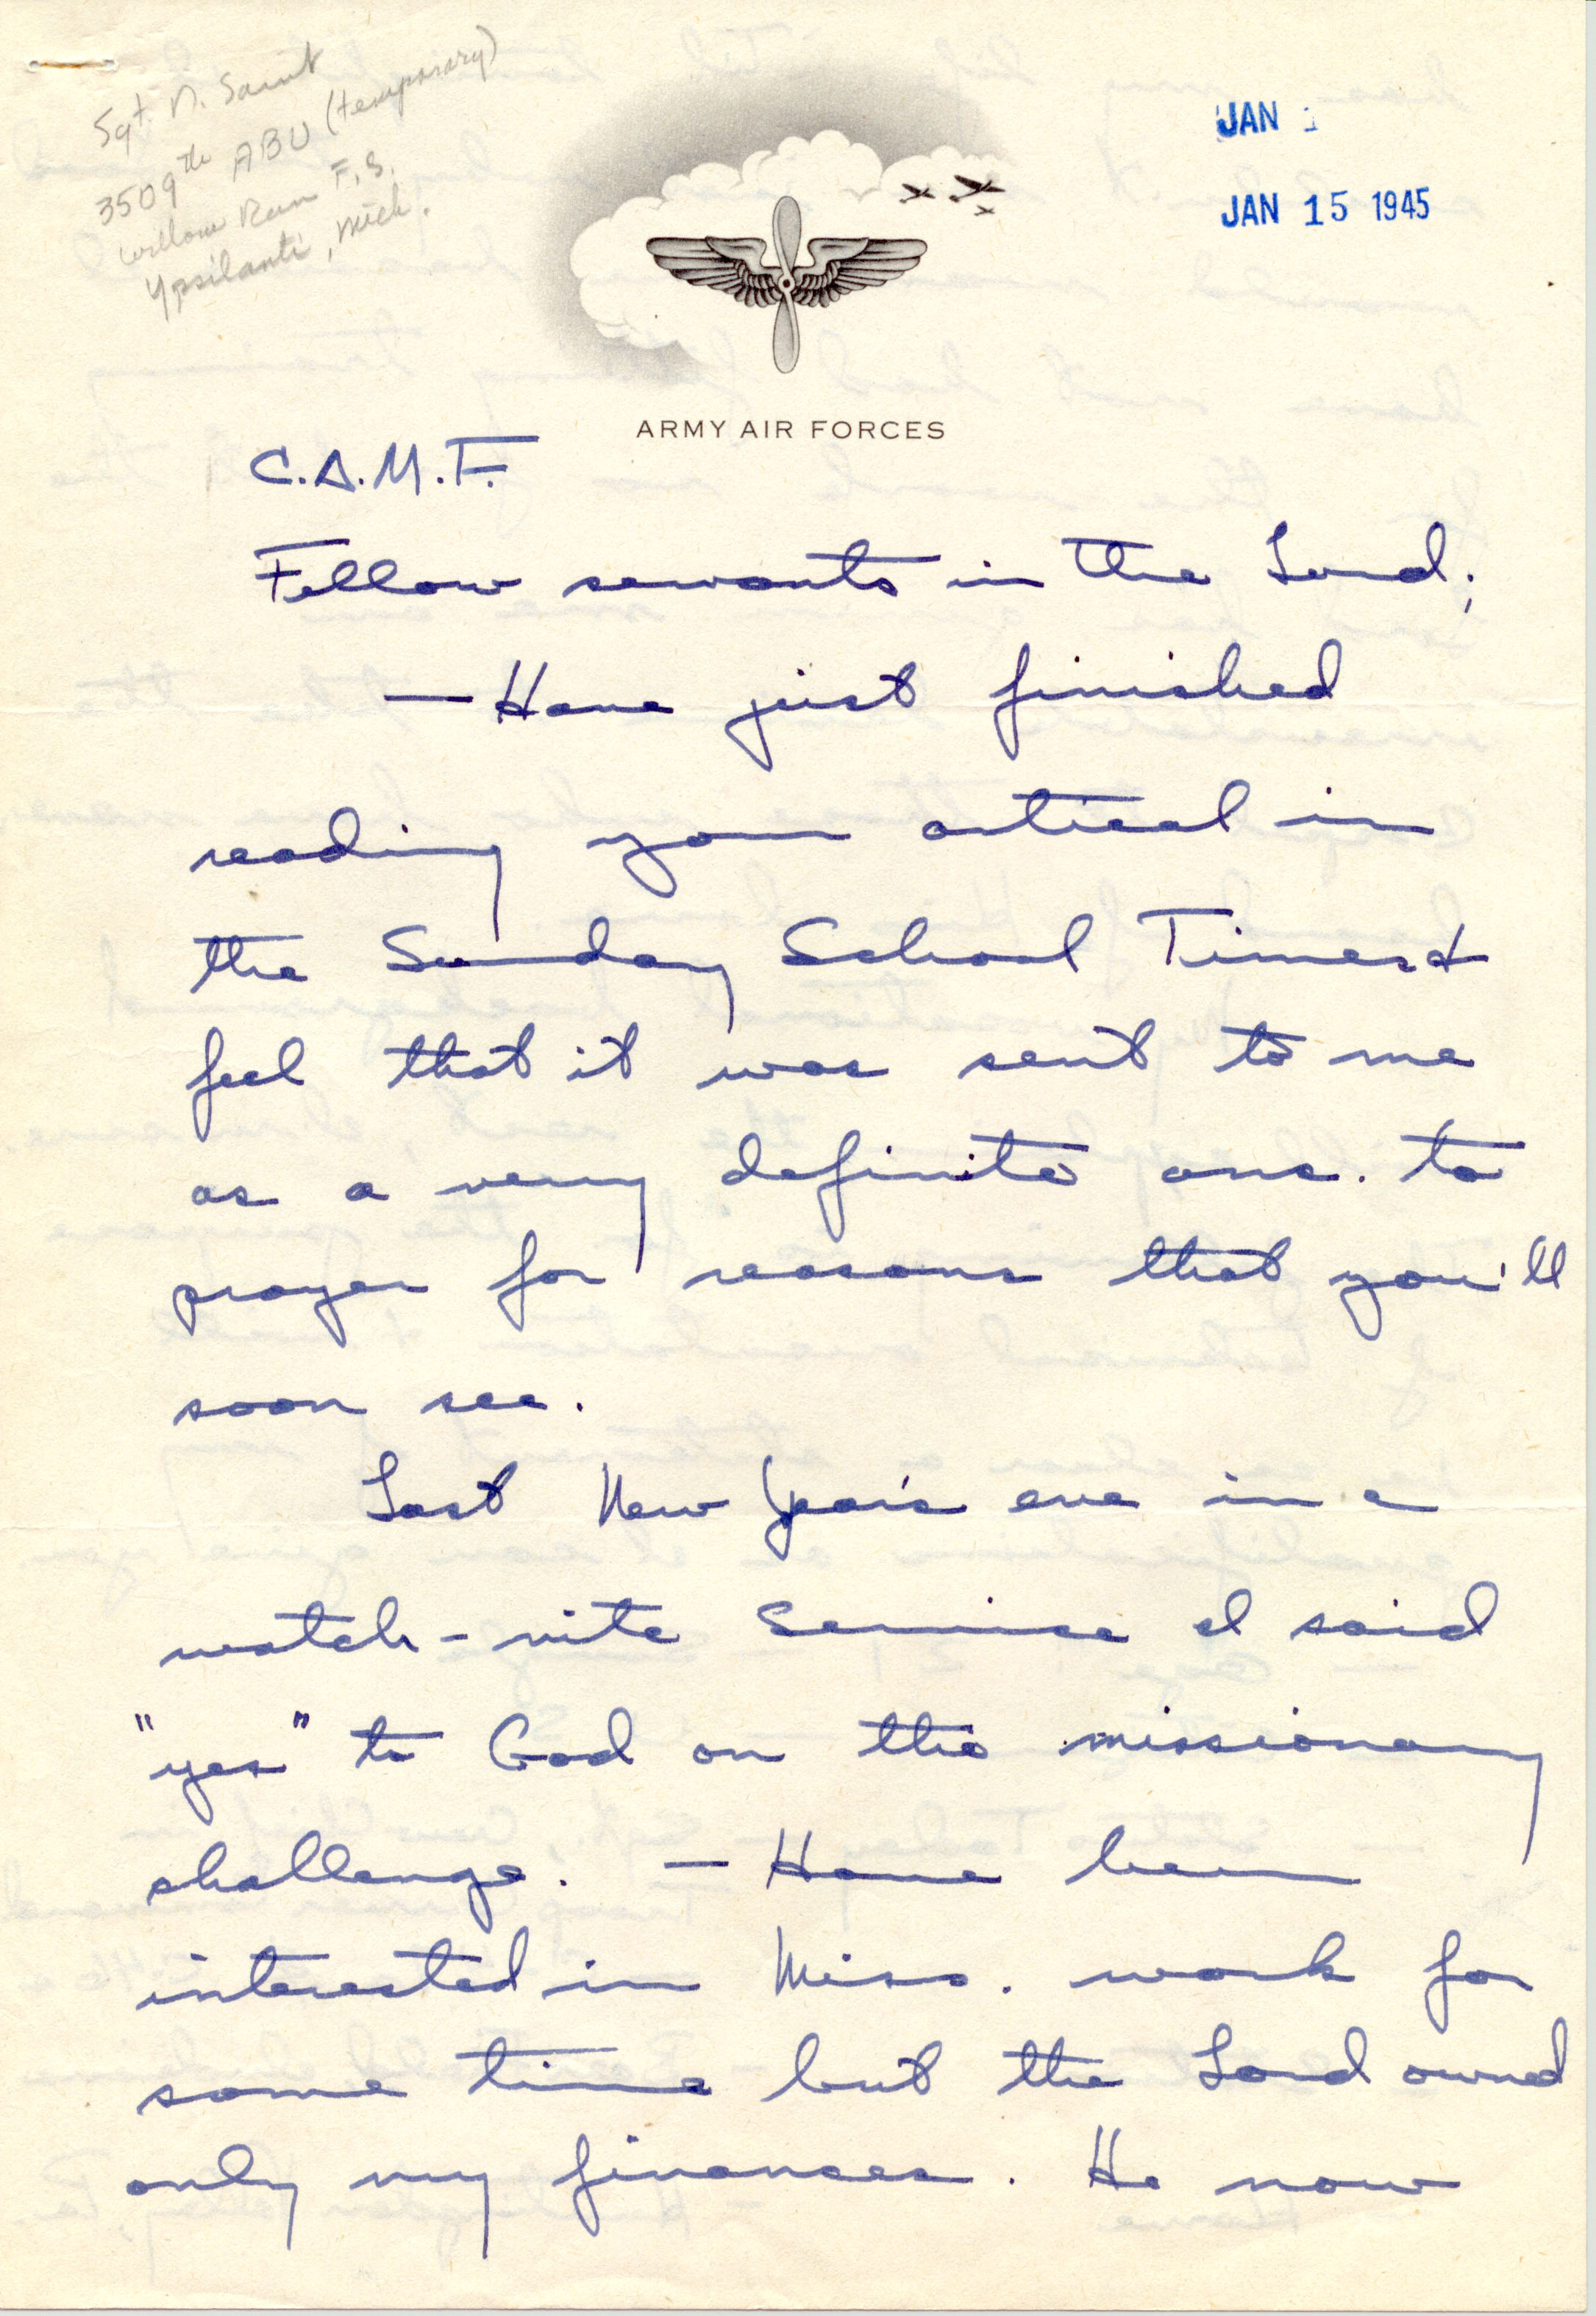 Sgt. N. Saint
3509th ABU (temporary)
Willow Run F.S.
Ypsilanti, Mich.
JAN 1
JAN 15 1945
ARMY AIR FORCES
C.A.M.F.
Fellow servants in the Lord;
— Have just finished
reading your artical in
the Sunday School Times &
feel that it was sent to me
as a very definite ans. to
prayer for reasons that you'll
soon see.
Last New Year's eve in a
watch-nite Service I said
"yes" to God on the missionary
challenge. — Have been
interested in Miss. work for
some time but the Lord owned
only my finances. He now